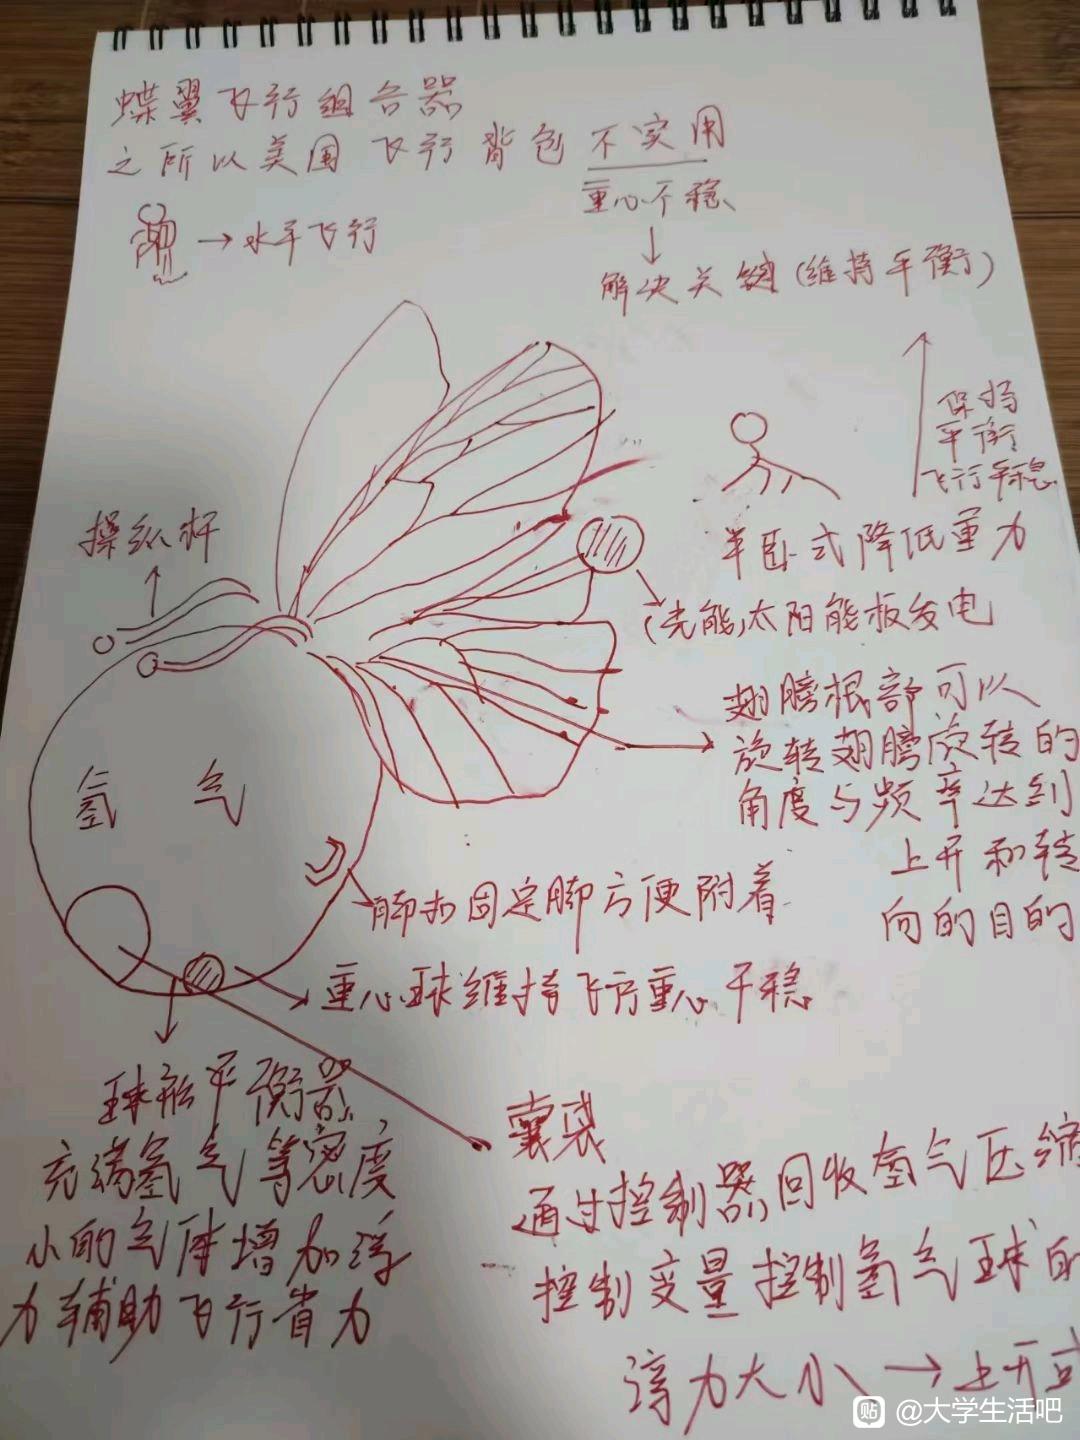 蝶翼飞行组合器
之所以美国飞行背包不实用
重心不稳
→水平飞行
解决关键(维持平衡)
保持
平衡
飞行平稳
操纵杆
半卧式降低重力
(光能)太阳能板发电
翅膀根部可以
旋转翅膀旋转的
角度与频率达到
上升和转
向的目的
氢气
脚扣固定脚方便附着
重心球维持飞行重心平稳
球形平衡器
充满氢气等密度
小的气体增加浮
力辅助飞行省力
囊袋
通过控制器回收氢气压缩
控制变量控制氢气球的
浮力大小→上升或
@大学生活吧